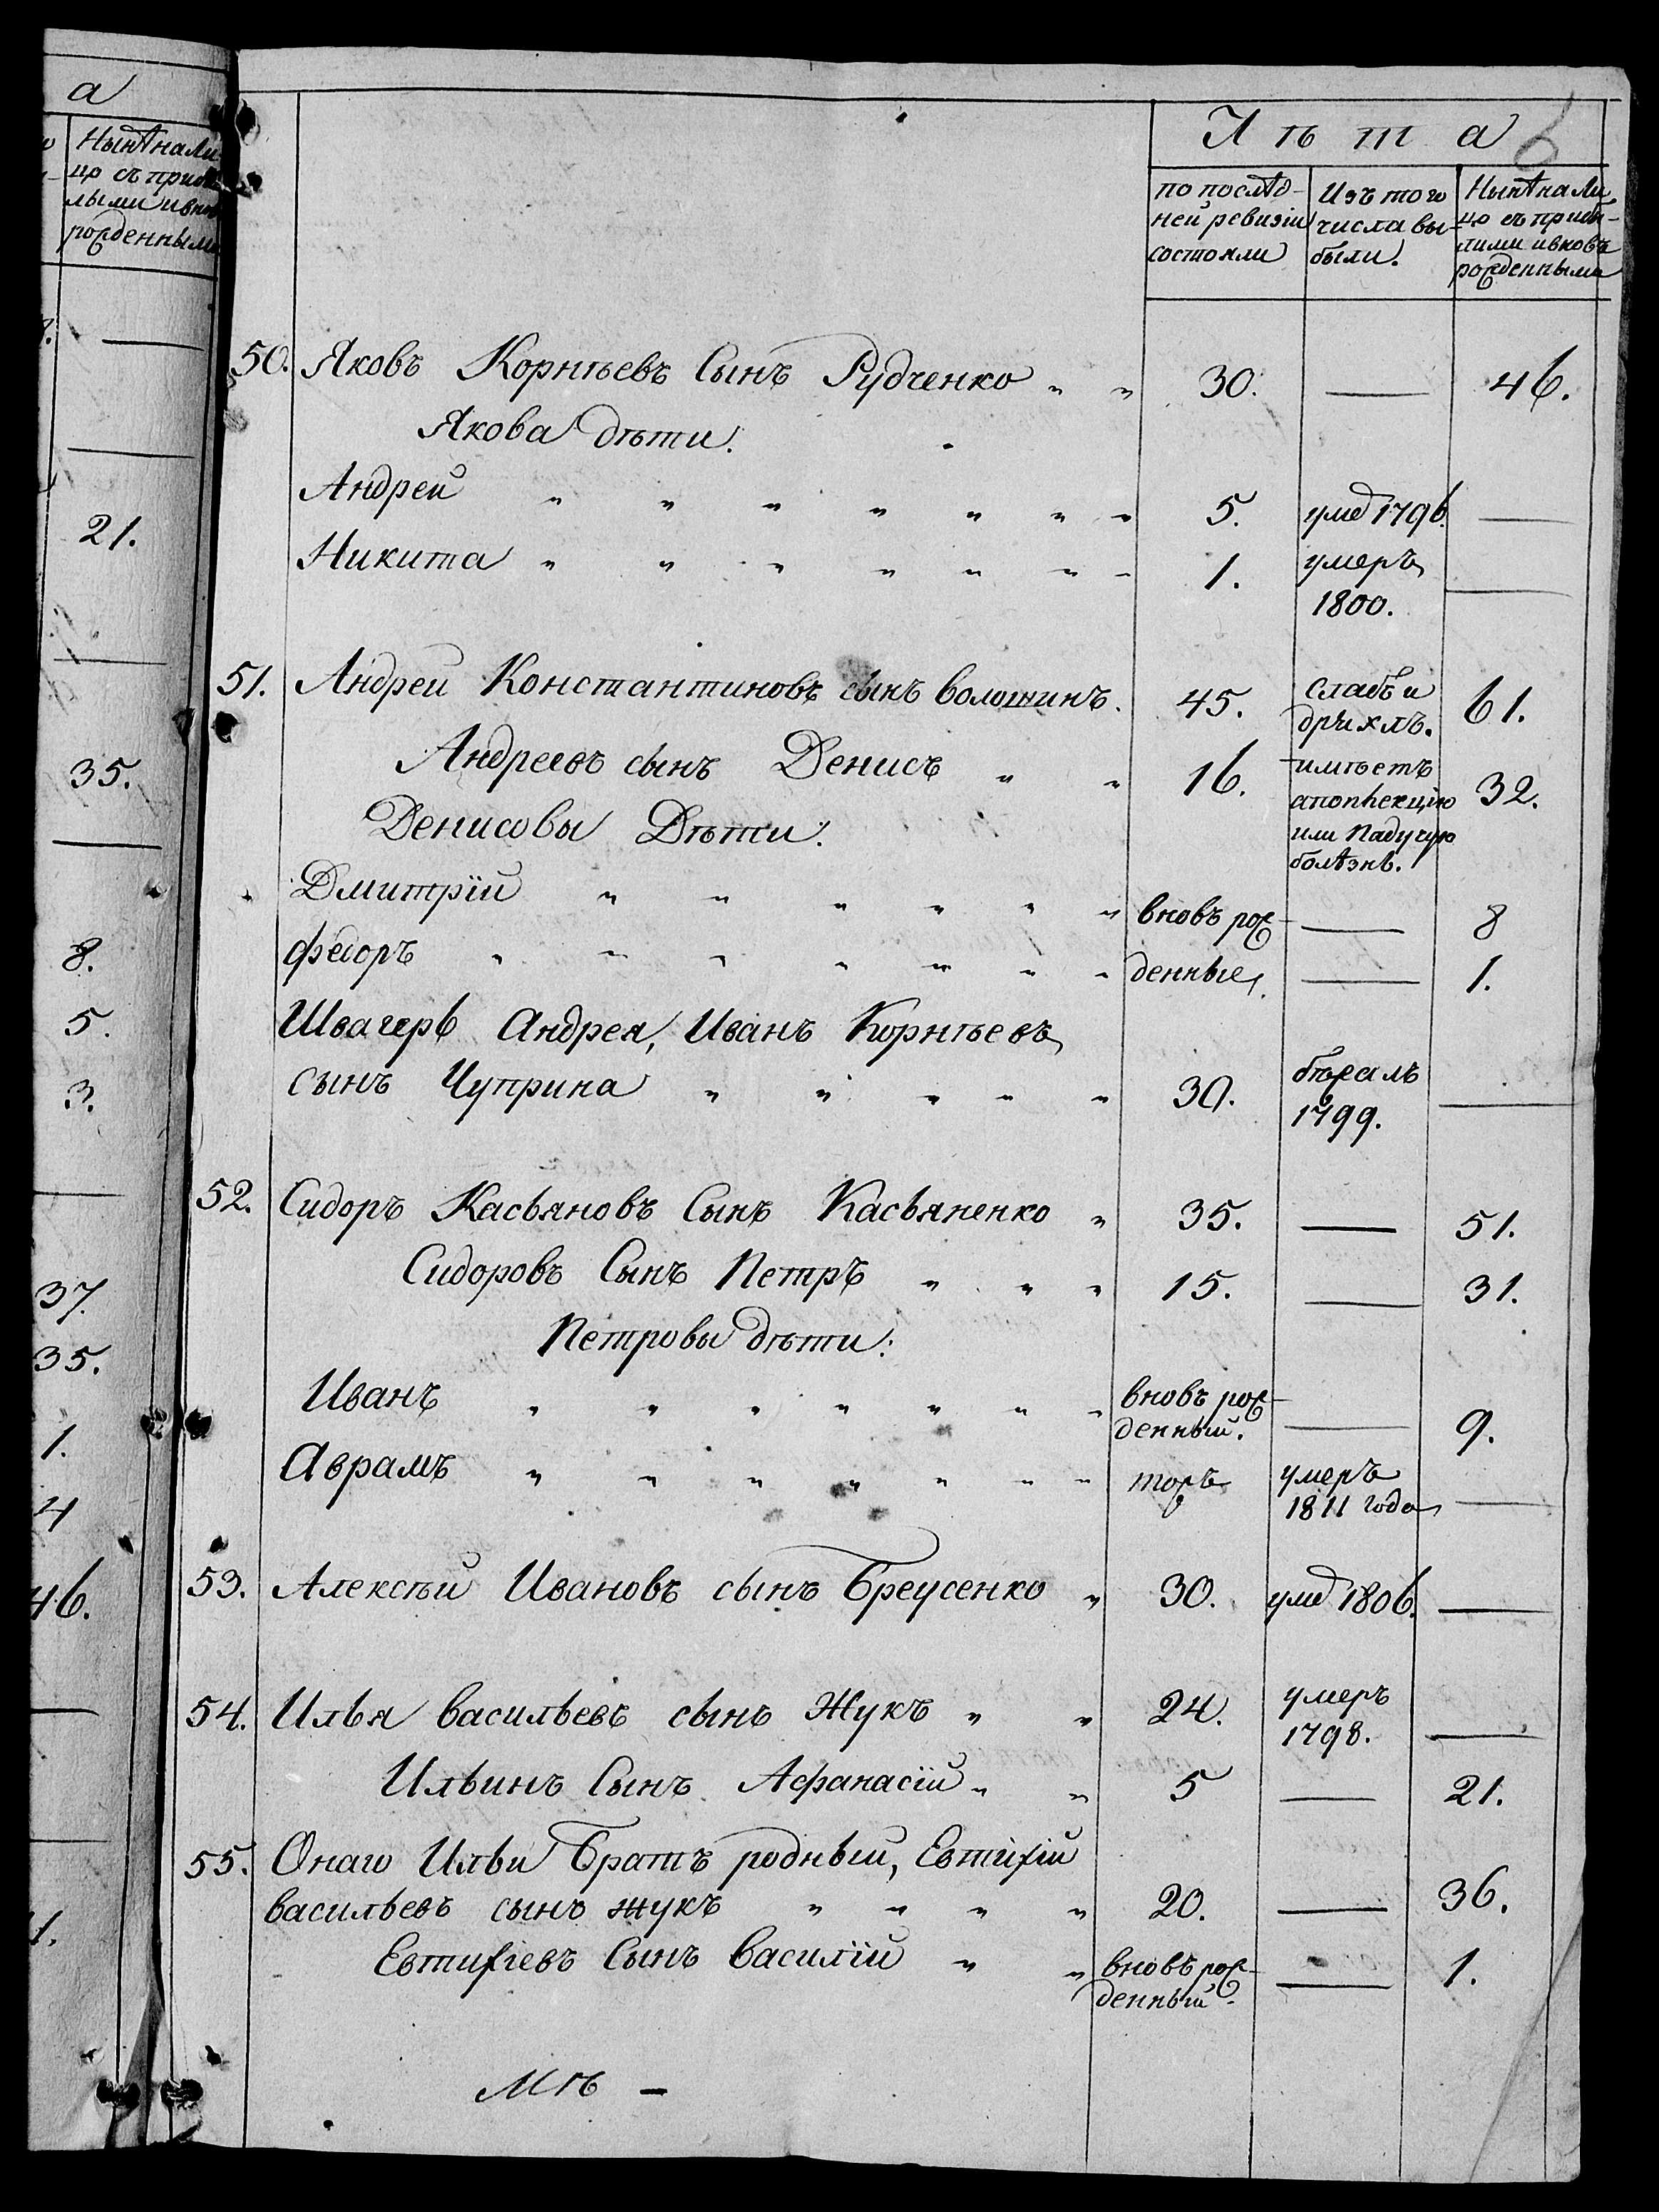 а
Нынѣ нали
цо съ прибы
лыми и внов
рожденными
21.
35.
8.
5.
3.
37.
35.
1.
4
46.
1.
Лѣта
6
по послѣд-
ней ревизіи
состояли
Изъ того
числа вы-
были.
Нынѣ нали
цо съ прибы-
лими и вновь
рожденными
50. Яковъ Корнѣевъ Сынъ Рудченко " " 30. — 46.
Якова дѣти:
Андрей " " " " " " " 5. умер 1796. —
Никита " " " " " " " 1. умеръ —
1800.
51. Андрей Константиновъ сынъ волошинъ. 45. слабъ и 61.
дрихлъ.
Андреевъ сынъ Денисъ " " 16. имѣетъ 32.
апоплекцію
или падучую
болѣзнь.
Денисовы Дѣти:
Дмитрій " " " " " " вновъ рож- — 8
федоръ " " " " " " " денные. — 1.
Швагерь Андрея, Иванъ Корнѣевъ
сынъ Чуприна " " " " " 30. бѣжалъ —
1799.
52. Сидоръ Касьяновъ Сынъ Касьяненко " 35. — 51.
Сидоровъ Сынъ Петръ " " " 15. — 31.
Петровы дѣти:
Иванъ " " " " " " " вновъ рож- — 9.
денный.
Аврамъ " " " " " " " тожъ умеръ —
1811 года
53. Алексѣй Ивановъ сынъ Бреусенко " 30. умер 1806. —
54. Илья васильевъ сынъ Жукъ " " 24. умеръ —
1798.
Ильинъ Сынъ Афанасій " " 5 — 21.
55. Онаго Ильи Братъ родный, Евтихій
васильевъ сынъ жукъ " " " " 20. — 36.
Евтихіевъ Сынъ василій " " вновъ рож- — 1.
денный.
Мѣ —